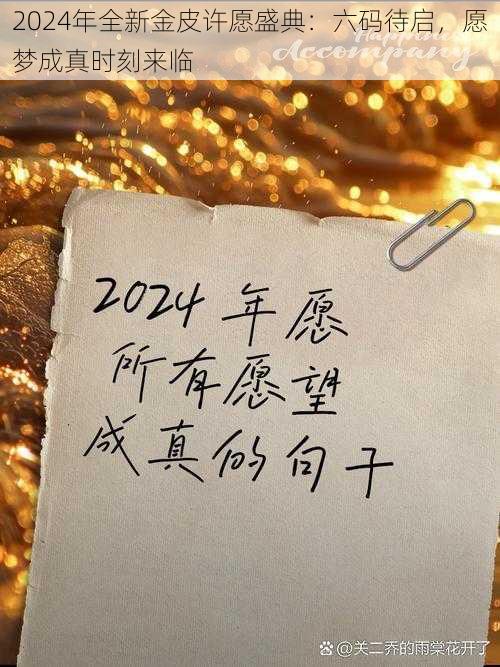 2024年全新金皮许愿盛典：六码待启，愿
梦成真时刻来临
Happiness
Accompany
2024年愿
所有愿望
成真的句子
@关二乔的雨棠花开了